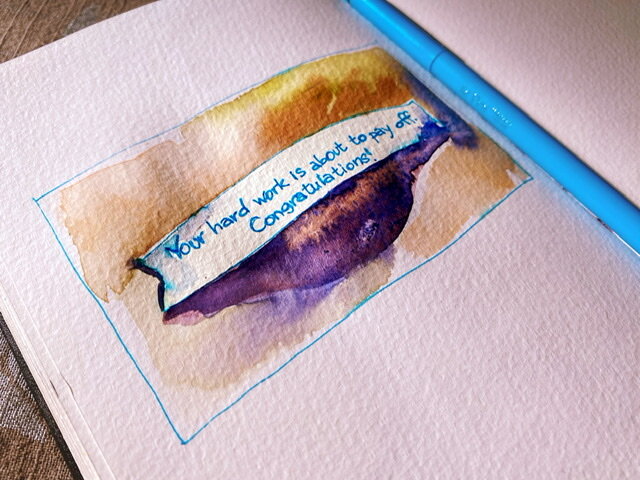 Your hard work is about to pay off.
Congratulations!